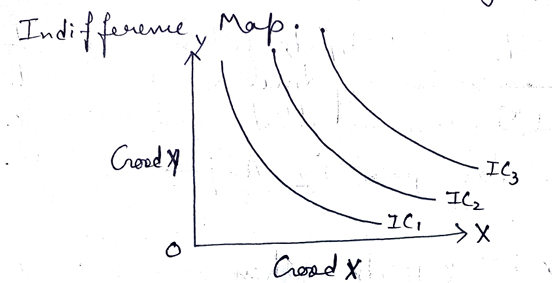 Indifference Map.
Y
Good Y
IC₃
IC₂
IC₁
X
O
Good X